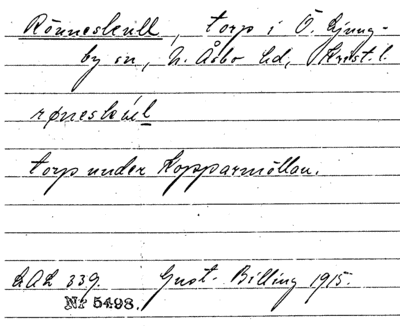 Rönneskull, torp i Ö. Ljung-
by sn, N. Åsbo hd, Krist. l.
torp under Kopparmöllan.
LAL 339. Gust. Billing 1915.
Nr 5498.